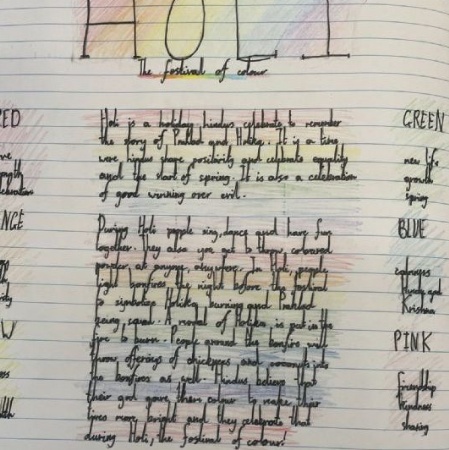 HOLI
The festival of colour
RED
Holi is a holiday hindus celebrate to remember
the story of Prahlad and Holika. It is a time
were hindus shape positivity and celebrate equality
and the start of spring. It is also a celebration
of good winning over evil.
During Holi people sing, dance and have fun
together. They also use to throw coloured
powder, at anyone, anywhere. In Holi, people
light bonfires the night before the festival
to symbolise Holika burning and Prahlad
being saved. A model of Holika is put in the
fire to burn. People around the bonfire will
throw offerings of chickpeas and coconuts into
the bonfires as well. Hindus believe that
their god gave them colour to make their
lives more bright and they celebrate that
during Holi, the festival of colour!
GREEN
new life
growth
spring
BLUE
Hindu god
Krishna
PINK
friendship
kindness
sharing